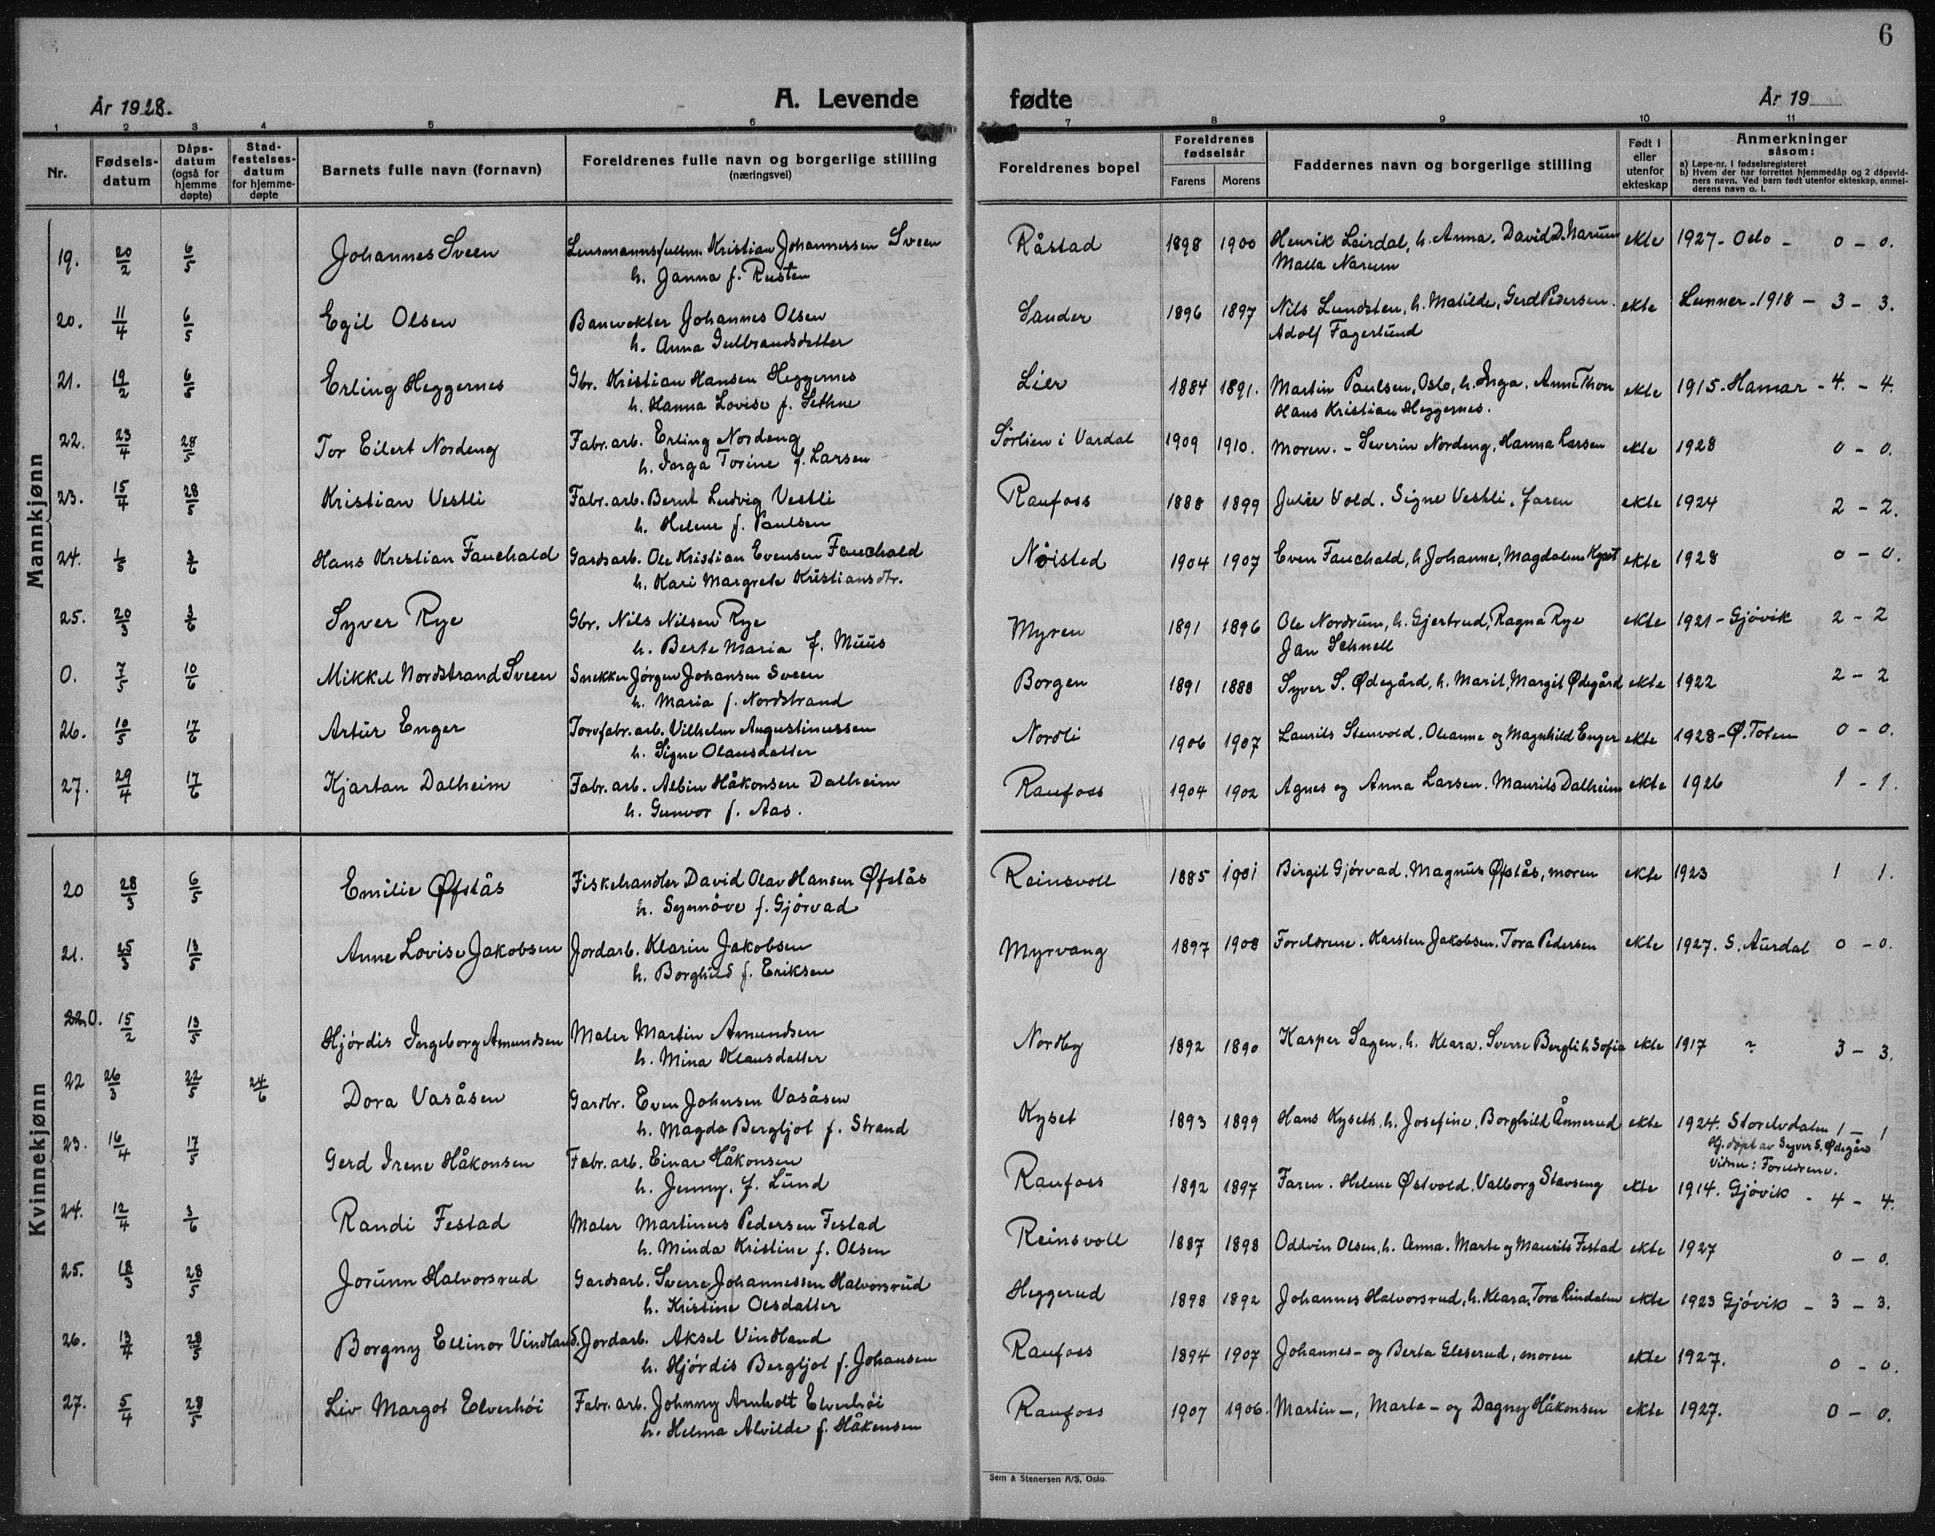 6
År 1928.
A. Levende
fødte
År 19
1 2 3 4 5 6 7 8 9 10 11
Nr.
Fødsels-
datum
Dåps-
datum
(også for
hjemme
døpte)
Stad-
festelses-
datum
for hjemme-
døpte
Barnets fulle navn (fornavn)
Foreldrenes fulle navn og borgerlige stilling
(næringsvei)
Foreldrenes bopel
Foreldrenes
fødselsår
Farens Morens
Faddernes navn og borgerlige stilling
Født i
eller
utenfor
ekteskap
Anmerkninger
såsom:
a) Løpe-nr. i fødselsregisteret
b) Hvem der har forrettet hjemmedåp og 2 dåpsvid-
ners navn. Ved barn født utenfor ekteskap, anmel-
derens navn o. l.
Mannkjønn
19. 20/2 6/5 Johannes Sveen Lensmannsfullm. Kristian Johannessen Sveen Råstad 1898 1900 Henrik Leirdal, h. Anna. David D. Narum ekte 1927 - Oslo - 0 - 0.
h. Janna f. Rusten Malla Narum
20. 11/4 6/5 Egil Olsen Banevokter Johannes Olsen Sander 1896 1897 Nils Lundsten, h. Matilde, Gerd Pedersen. ekte Lunner - 1918 - 3 - 3.
h. Anna Gulbrandsdatter Adolf Fagerlund
21. 19/2 6/5 Erling Heggernes Gbr. Kristian Hansen Heggernes Lier 1884 1891. Martin Paulsen, Oslo, h. Inga. Anne Thon ekte 1915 - Hamar - 4. - 4.
h. Hanna Lovise f. Sethne Hans Kristian Heggernes.
22. 23/4 28/5 Tor Eilert Nordeng Fabr. arb. Erling Nordeng Sørlien i Vardal 1909 1910. Moren. - Severin Nordeng, Hanna Larsen ekte 1928 0 - 0.
h. Inga Torine f. Larsen
23. 15/4 28/5 Kristian Vestli Fabr. arb. Bernt Ludvig Vestli Raufoss 1888 1899 Julie Vold. Signe Vestli. faren ekte 1924 2 - 2.
h. Helene f. Paulsen
24. 1/5 3/6 Hans Kristian Fauchald Gardsarb. Ole Kristian Evensen Fauchald Nøisted 1904 1907 Even Fauchald, h. Johanne, Magdalene Kyset ekte 1928 0 - 0.
h. Kari Margrete Kristiansdtr.
25. 20/3 3/6 Syver Rye Gbr. Nils Nilsen Rye Myren 1891 1896 Ole Nordrum, h. Gjertrud, Ragna Rye ekte 1921 - Gjøvik 2 - 2
h. Berte Maria f. Muus Jan Schnell
0. 7/5 10/6 Mikkel Nordstrand Sveen Snekker Jørgen Johansen Sveen Borgen 1891 1888 Syver S. Ødegård, h. Marit, Margit Ødegård ekte 1922 2 - 2
h. Maria f. Nordstrand
26. 10/5 17/6 Artur Enger Torvfabr. arb. Vilhelm Augustinussen Nordli 1906 1907 Laurits Stenvold. Oleanne og Magnhild Enger ekte 1928 - Ø. Toten 0 - 0.
h. Signe Olausdatter
27. 29/4 17/6 Kjartan Dalheim Fabr. arb. Albin Håkonsen Dalheim Raufoss 1904 1902 Agnes og Anna Larsen. Maurits Dalheim ekte 1926 1 - 1.
h. Gunvor f. Aas.
Kvinnekjønn
20 28/3 6/5 Emilie Øfstås Fiskehandler David Olav Hansen Øfstås Reinsvoll 1885 1901 Birgit Gjørvad. Magnus Øfstås, moren ekte 1923 1 1.
h. Synnøve f. Gjørvad
21. 25/3 13/5 Anne Lovise Jakobsen Jordarb. Klarin Jakobsen Myrvang 1897 1908 Foreldrene. Karsten Jakobsen. Tora Pedersen ekte 1927. S. Aurdal 0 - 0.
h. Borghild f. Eriksen
22.0. 15/2 13/5 Hjørdis Ingeborg Amundsen Maler Martin Amundsen Nordby 1892 1890 Kasper Sagen, h. Klara. Sverre Bergli h. Sofie ekte 1917 " 3 - 3.
h. Mina Klausdatter
22 26/3 22/5 24/6 Dora Vasåsen Gardbr. Even Johnsen Vasåsen Kyset 1893 1899 Hans Kyseth, h. Josefine. Borghild Ånnerud ekte 1924. Storelvdalen 1 - 1
h. Magda Bergljot f. Strand Hj. døpt av Syver S. Ødegård
Vidner: Foreldrene.
23. 16/4 17/5 Gerd Irene Håkonsen Fabr. arb. Einar Håkonsen Raufoss 1892 1897 Faren. Helene Østvold. Valborg Stavseng ekte 1914. Gjøvik - 4 - 4.
h. Jenny, f. Lund
24. 12/4 3/6 Randi Festad Maler Martinus Pedersen Festad Reinsvoll 1887 1898 Oddvin Olsen, h. Anna. Marte og Maurits Festad ekte 1927 0 - 0.
h. Minda Kristine f. Olsen
25. 18/3 28/5 Jorunn Halvorsrud Gardsarb. Sverre Johannessen Halvorsrud Heggerud 1898 1892 Johannes Halvorsrud, h. Klara, Tora Lindalen ekte 1923 Gjøvik - 3 - 3.
h. Kristine Olsdatter
26. 13/4 28/5 Borgny Ellinor Vindland. Jordarb. Aksel Vindland Raufoss 1894 1907 Johannes - og Berta Gleserud, moren ekte 1927. 0 - 0.
h. Hjørdis Bergljot f. Johansen
27. 5/4 28/5 Liv Margot Elverhøi Fabr. arb. Johnny Arnholt Elverhøi Raufoss 1907 1906. Martin -, Marta - og Dagny Håkonsen ekte 1927. 0 - 0.
h. Helma Alvilde f. Håkensen
Sem & Stenersen A/S, Oslo.